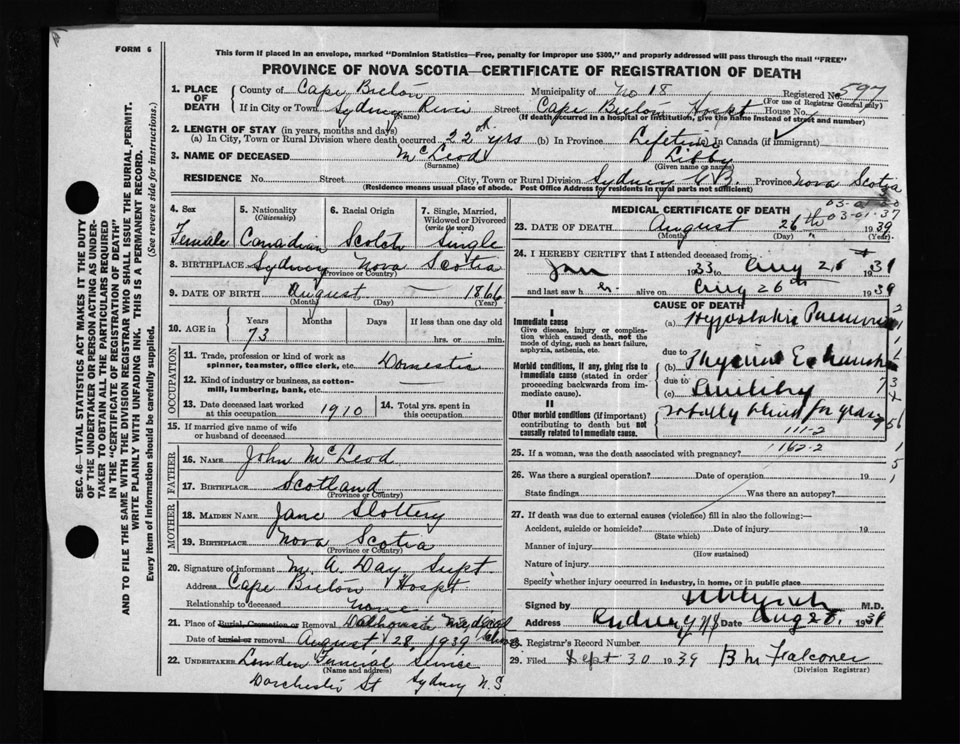 FORM 6
This form if placed in an envelope, marked "Dominion Statistics—Free, penalty for improper use $300," and properly addressed will pass through the mail "FREE"
PROVINCE OF NOVA SCOTIA—CERTIFICATE OF REGISTRATION OF DEATH
SEC. 46—VITAL STATISTICS ACT MAKES IT THE DUTY
OF THE UNDERTAKER OR PERSON ACTING AS UNDER-
TAKER TO OBTAIN ALL THE PARTICULARS REQUIRED
IN THE "CERTIFICATE OF REGISTRATION OF DEATH"
AND TO FILE THE SAME WITH THE DIVISION REGISTRAR WHO SHALL ISSUE THE BURIAL PERMIT.
WRITE PLAINLY WITH UNFADING INK. THIS IS A PERMANENT RECORD.
Every item of information should be carefully supplied. (See reverse side for instructions.)
1. PLACE OF DEATH County of Cape Breton Municipality of No 18 Registered No. 597
(For use of Registrar General only)
If in City or Town Sydney River Street Cape Breton Hospt House No.
(Name) (If death occurred in a hospital or institution, give the name instead of street and number)
2. LENGTH OF STAY (in years, months and days)
(a) In City, Town or Rural Division where death occurred 22 yrs (b) In Province Lifetime In Canada (if immigrant)
3. NAME OF DECEASED McLeod Libby
(Surname) (Given name or names)
RESIDENCE No. Street City, Town or Rural Division Sydney C B. Province Nova Scotia
(Residence means usual place of abode. Post Office Address for residents in rural parts not sufficient)
4. Sex 5. Nationality (Citizenship) 6. Racial Origin 7. Single, Married, Widowed or Divorced (write the word)
Female Canadian Scotch Single
8. BIRTHPLACE Sydney Nova Scotia
(Province or Country)
9. DATE OF BIRTH August — 1866
(Month) (Day) (Year)
10. AGE in Years Months Days If less than one day old
73 hrs. or min.
OCCUPATION
11. Trade, profession or kind of work as spinner, teamster, office clerk, etc. Domestic
12. Kind of industry or business, as cotton-mill, lumbering, bank, etc. —
13. Date deceased last worked at this occupation 1910 14. Total yrs. spent in this occupation
15. If married give name of wife or husband of deceased
FATHER
16. NAME John McLeod
17. BIRTHPLACE Scotland
(Province or Country)
MOTHER
18. MAIDEN NAME Jane Slottery
19. BIRTHPLACE Nova Scotia
(Province or Country)
20. Signature of informant M. A. Day Supt
Address Cape Breton Hospt
Relationship to deceased None
21. Place of Burial, Cremation or Removal Dalhousie Medical
Date of burial or removal August, 28, 1939
22. UNDERTAKER Funeral Service
(Name and address)
Dorchester St Sydney N.S
MEDICAL CERTIFICATE OF DEATH
03-01-37
23. DATE OF DEATH August 26th 1939
(Month) (Day) (Year)
24. I HEREBY CERTIFY that I attended deceased from:
Jan 1933 to Aug 26th 1939
and last saw h er alive on Aug 26th 1939
CAUSE OF DEATH
I
Immediate cause
Give disease, injury or complication which caused death, not the mode of dying, such as heart failure, asphyxia, asthenia, etc.
(a) Hypostatic Pneumonia
due to
Morbid conditions, if any, giving rise to immediate cause (stated in order proceeding backwards from immediate cause).
(b)
due to
(c) Senility
II
Other morbid conditions (if important) contributing to death but not causally related to immediate cause.
totally blind for years
111-2
25. If a woman, was the death associated with pregnancy? 1162-2
26. Was there a surgical operation? Date of operation 19
State findings Was there an autopsy?
27. If death was due to external causes (violence) fill in also the following:—
Accident, suicide or homicide? Date of injury 19
(State which)
Manner of injury
(How sustained)
Nature of injury
Specify whether injury occurred in industry, in home, or in public place
Signed by M.D.
Address Sydney NS Date Aug 28, 1939
28. Registrar's Record Number
29. Filed Sept 30 1939 B M Falconer
(Division Registrar)